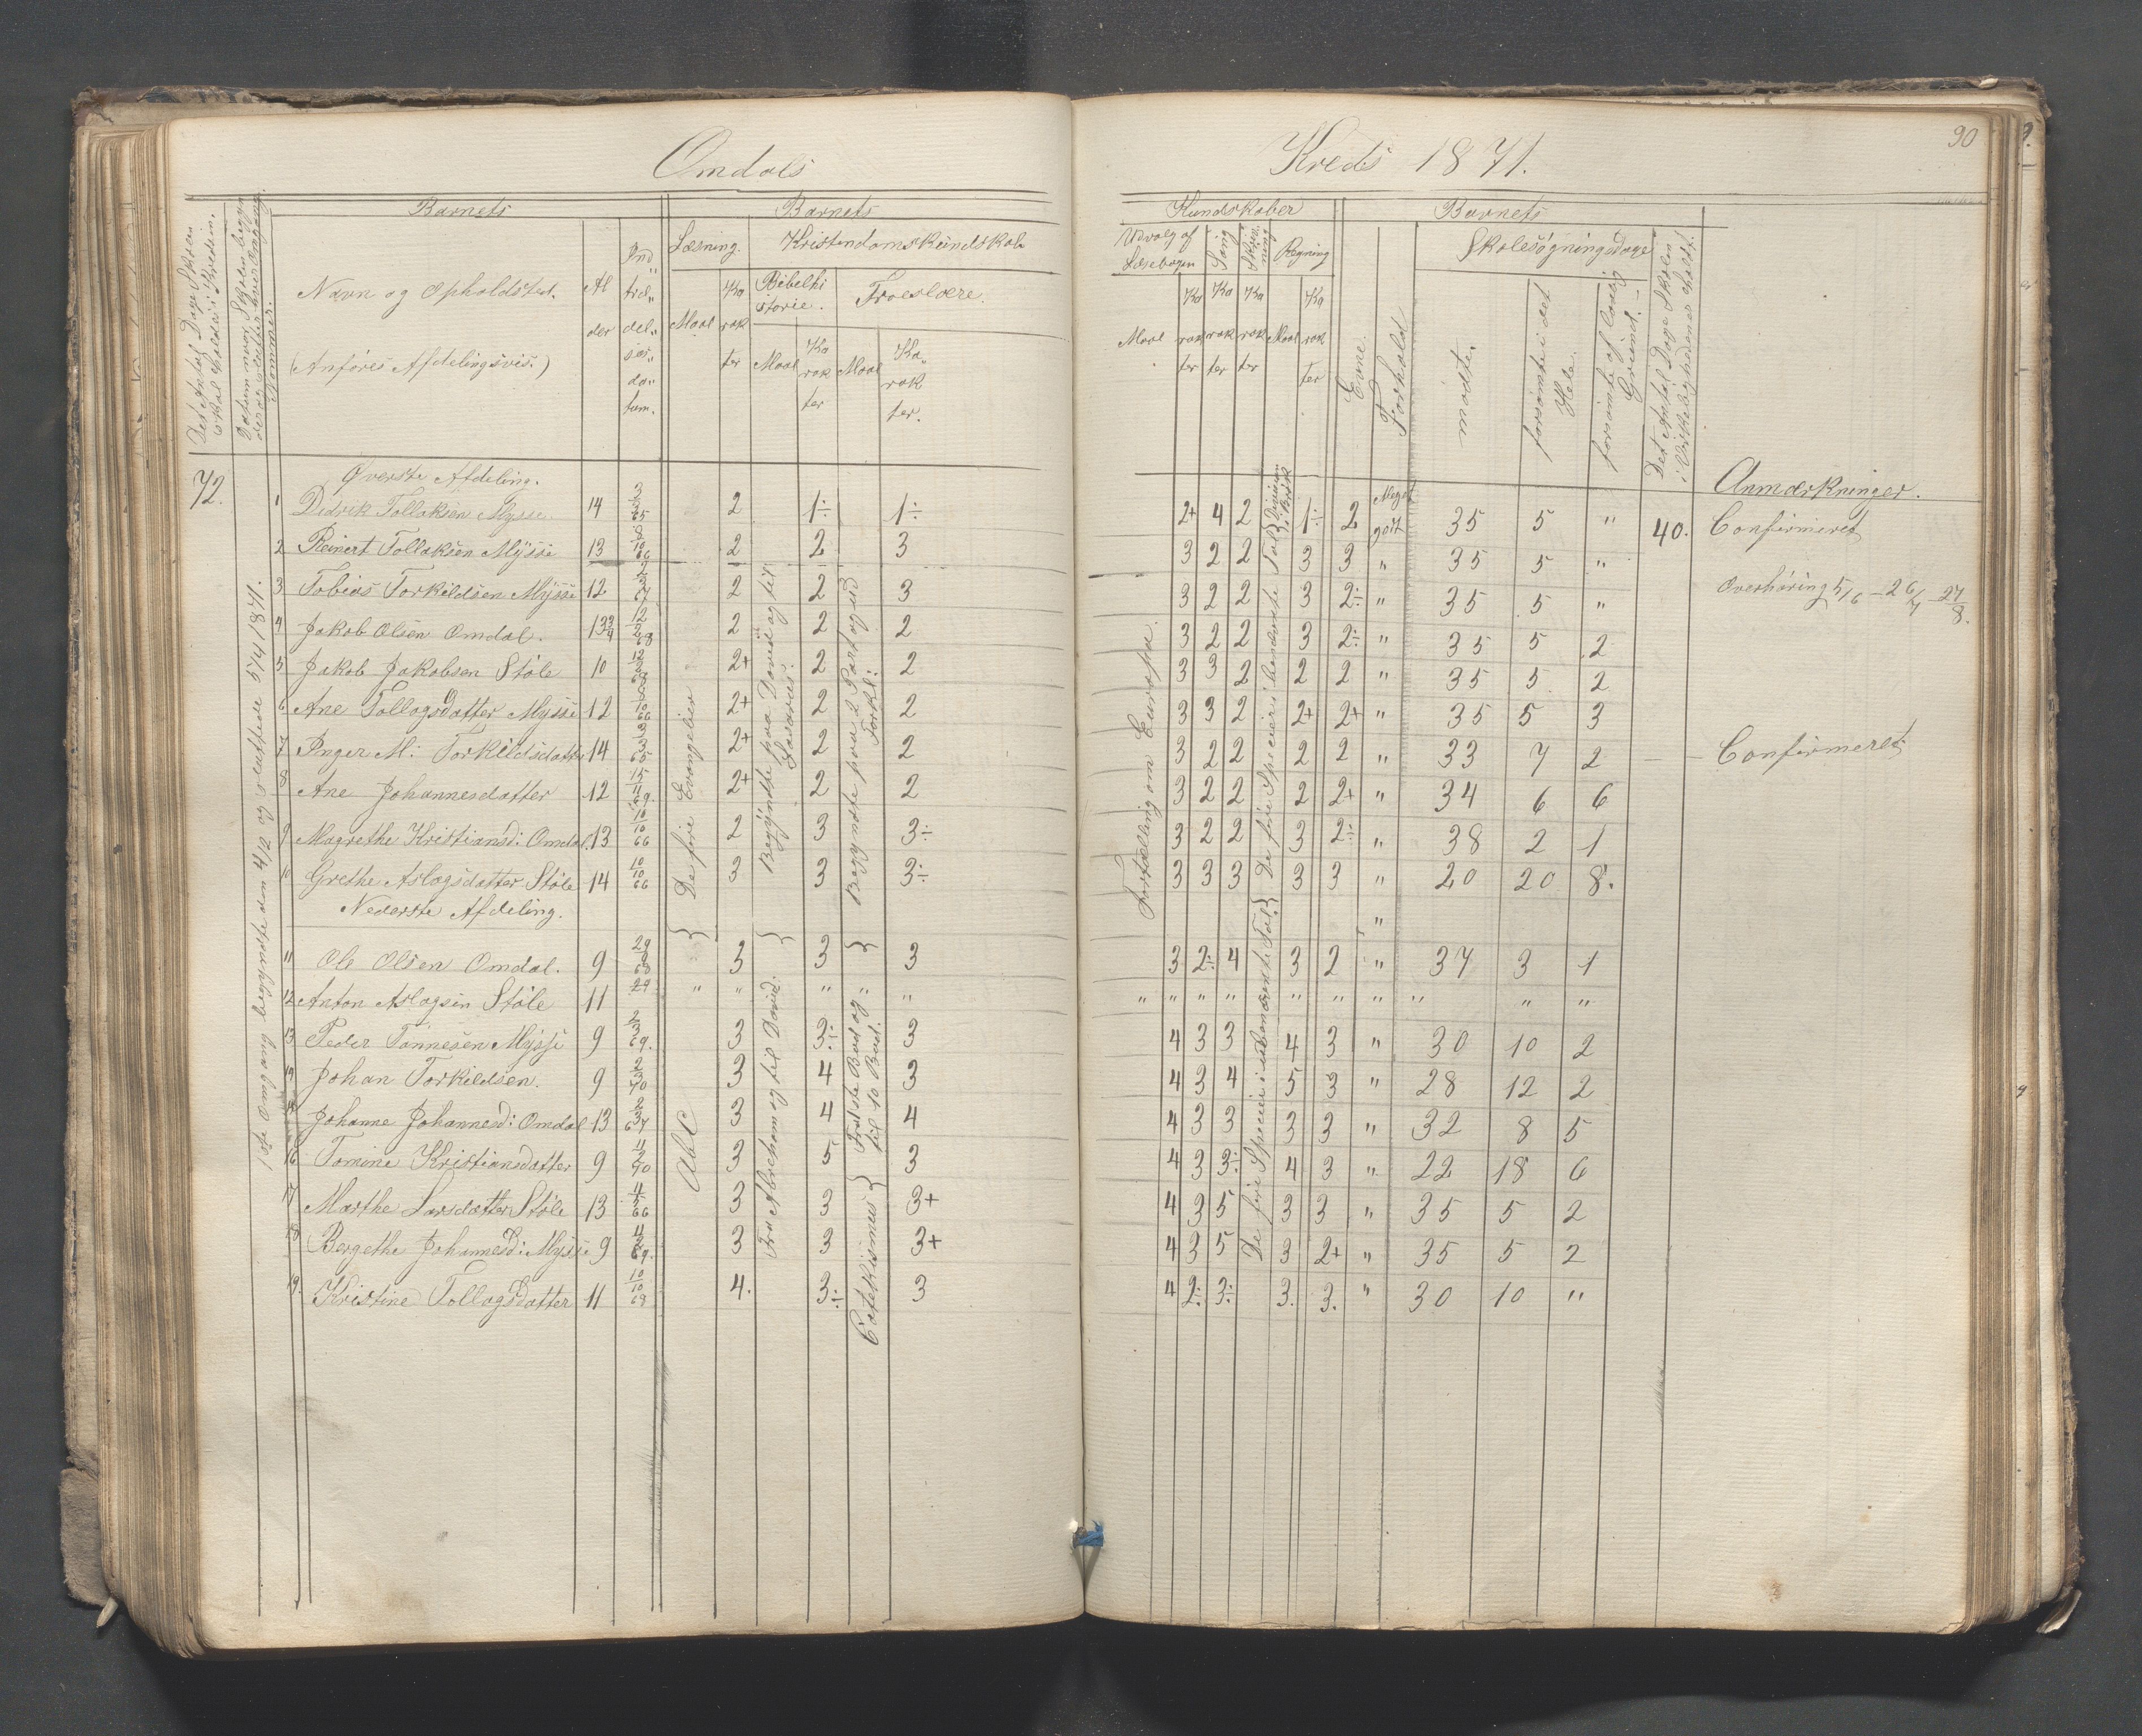 Omdals Kreds 1871.
90
Det Antal Dage Skolen skal holdes i Kredsen.
Datum naar Skolen begynder og slutter hver Omgang.
Nommer.
Barnets
Navn og Opholdsted.
(Anføres Afdelingsvis.)
Alder
Indtrædelsesdatum.
Barnets
Læsning.
Maal
Karakter
Kristendomskundskab
Bibelhistorie.
Maal
Karakter
Troeslære.
Maal
Karakter.
Kundskaber
Udvalg af Læsebogen
Maal
Karakter
Sang
Karakter
Skrivning
Karakter
Regning
Maal
Karakter
Evne.
Forhold
Barnets
Skolesøgningsdage
mødte.
forsømte i det Hele.
forsømte af lovlig Grund.
Det Antal Dage Skolen i Virkeligheden er holdt.
Anmærkninger.
72.
1ste Omgang begyndte den 4/2 og sluttede 5/4 1871.
Øverste Afdeling.
1 Didrik Tollaksen Mysse 14 2/3 65 2 1÷ 1÷ 2+ 4 2 1÷ 2 Meget godt 35 5 " 40. Confirmeret
2 Reinert Tollaksen Mysse 13 10 66 2 2 3 3 2 2 3 3 " 35 5 "
3 Tobias Torkildsen Mysse 12 67 2 2 3 3 2 2 3 2÷ " 35 5 " Overhøring 5/6 – 26/7 – 27/8.
4 Jakob Olsen Omdal. 13 3/4 12/2 68 2 2 2 3 2 2 3 2÷ " 35 5 2
5 Jakob Jakobsen Støle 10 2+ 2 2 3 3 2 2 2 " 35 5 2
6 Ane Tollagsdatter Mysse 12 10 66 2+ 2 2 3 3 2 2+ 2+ " 35 5 3
7 Inger M: Torkildsdatter 14 65 2+ 2 2 3 2 2 2 2 " 33 7 2 Confirmeret
8 Ane Johannesdatter 12 15 69. 2+ 2 2 3 2 2 2 2+ " 34 6 6
9 Magrethe Kristiansd: Omdal. 13 10/10 66 2 3 3÷ 3 2 2 3 2÷ " 38 2 1
10 Grethe Aslagsdatter Støle 14 10/10 66 3 3 3÷ 3 3 3 3 3 " 20 20 8.
De fire Evangelier
Begyndte paa David og til Lasarus.
Begyndte paa 2 Part og ud Forkl:
Fortælling om Europa.
De fire Specier i benævnte Tal
Nederste Afdeling.
11 Ole Olsen Omdal. 9 3 3 3 3 2÷ 4 3 2 " 37 3 1
12 Anton Aslagsen Støle 11 29 " " " " " " " " " " " " " "
13 Peder Tønnesen Mysse 9 2/3 69. 3 3÷ 3 4 3 3 4 3 " 30 10 2
14 Johan Torkildsen. 9 70 3 4 3 4 3 4 5 3 " 28 12 2
15 Johanne Johannesd: Omdal 13 2/3 67 3 4 4 4 3 3 3 3 " 32 8 5
16 Tomine Kristiansdatter 9 70 3 5 3 4 3 3÷ 4 3 " 22 18 6
17 Marthe Larsdatter Støle 13 66 3 3 3+ 4 3 5 3 3 " 35 5 2
18 Bergethe Johannesd: Mysse 9 69. 3 3 3+ 4 3 5 3 2+ " 35 5 2
19. Kristine Tollagsdatter 11 10/10 68 4. 3÷ 3 4 2÷ 3÷ 3. 3. " 30 10 "
AbC
Fra Abreham og til David.
Catekismus Fra 1ste Bud og til 10 Bud.
De fire Specier i ubenævnte Tal.